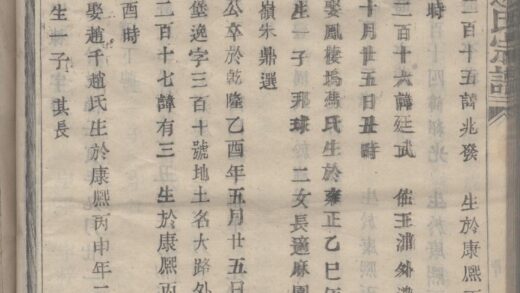 氏宗譜
二百十五諱兆發　生於康熙丙
時
二百十六諱廷武　住王浦外遷
十月廿五日丑時
娶鳳棲塢馮氏生於雍正乙巳年
生一子邦球　二女長適麻園
嶺朱鼎選
公卒於乾隆乙酉年五月廿五日
堡逸字三百十號地土名大路外
二百十七諱有三　生於康熙丙
酉時
娶趙千趙氏生於康熙丙申年二
生一子　其長